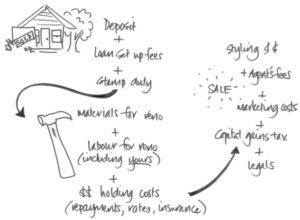 SOLD
Deposit
+
Loan set up fees
+
Stamp duty
materials for reno
+
labour for reno
(including yours)
+
$$ holding costs
(repayments, rates, insurance)
styling $$
+ Agent's fees
SALE
+
marketing costs
+
Capital gains tax
+
legals